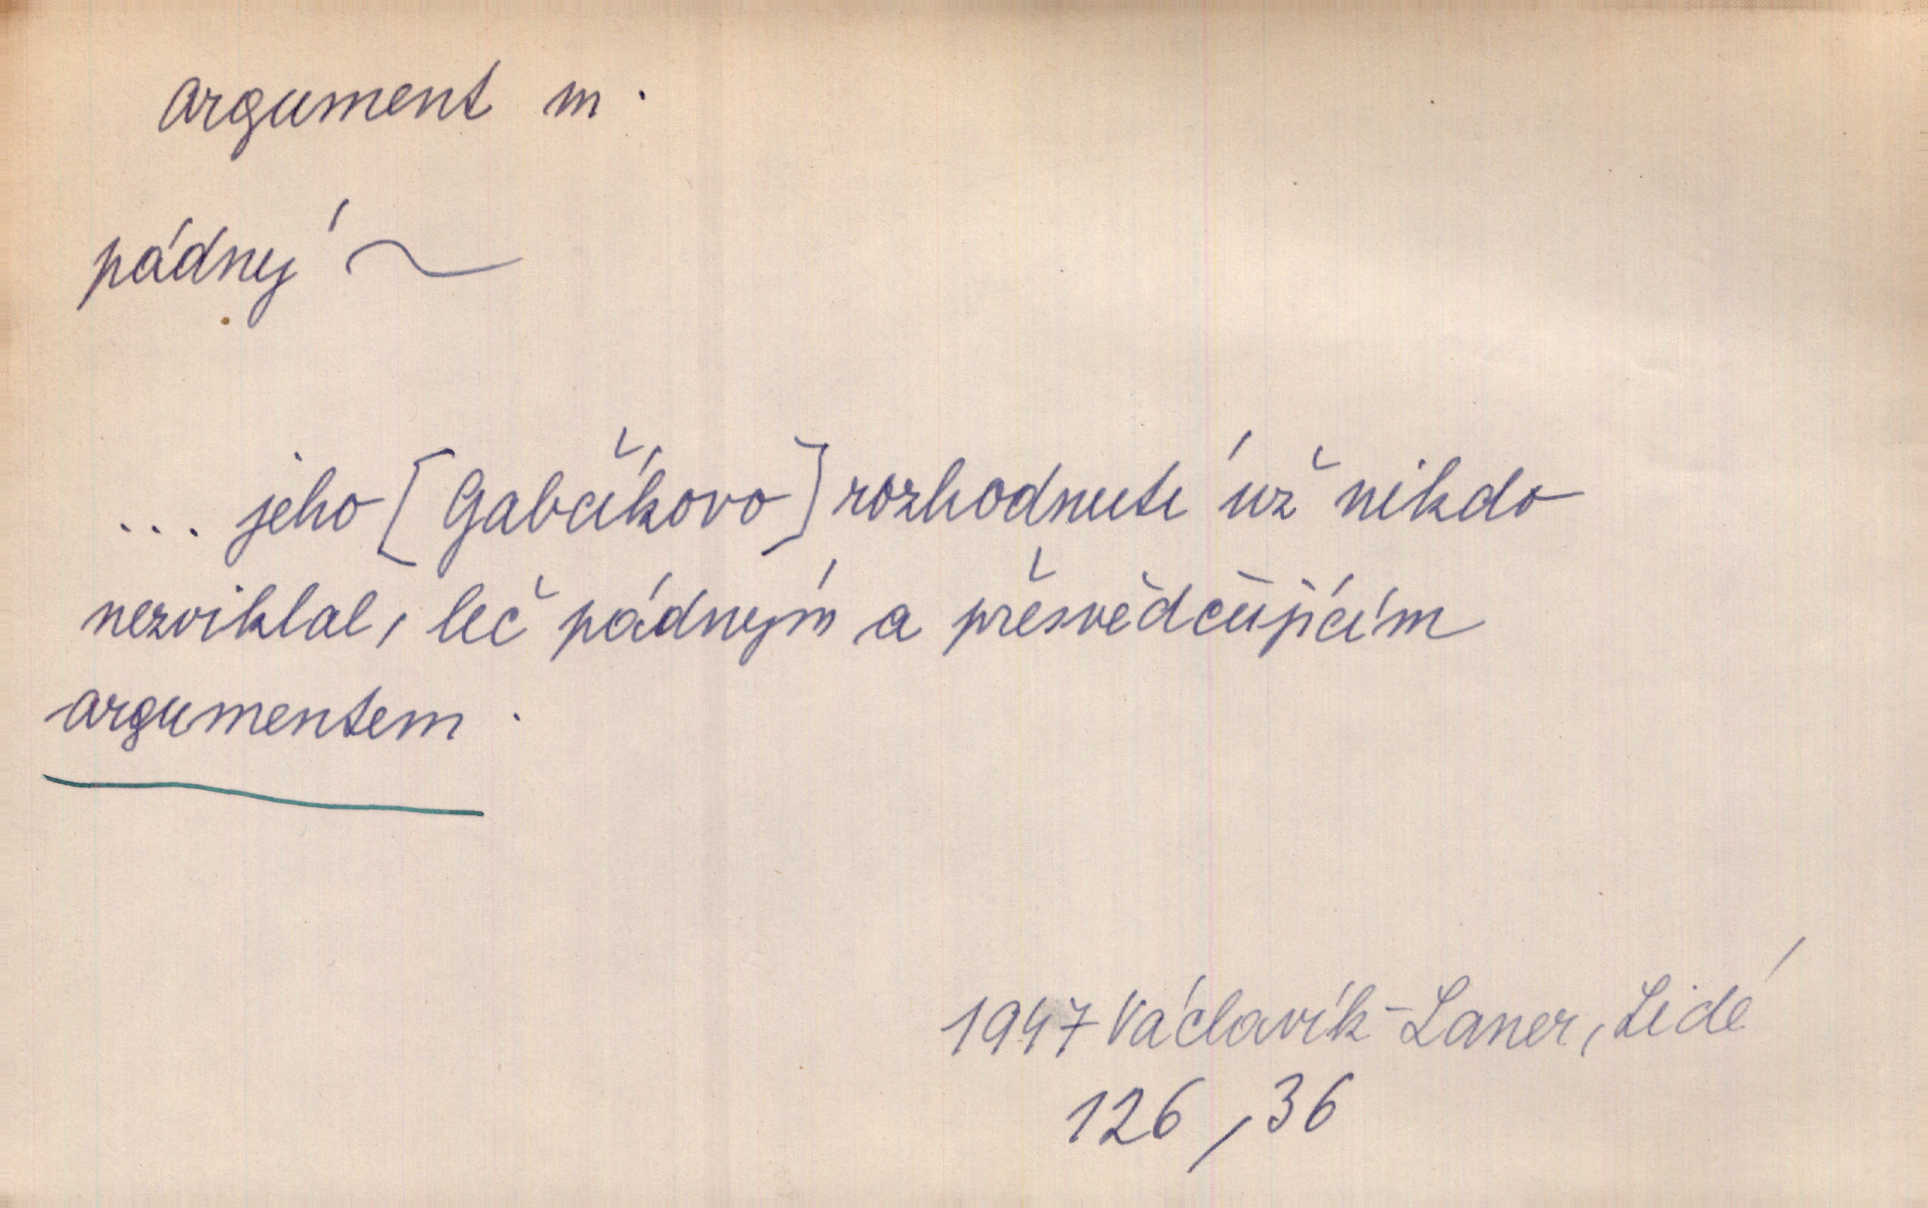 argument m.
pádný ~
... jeho [Gabčíkovo] rozhodnutí už nikdo
nezviklal, leč pádným a přesvědčujícím
argumentem.
1947 Václavík-Laner, Lidé
126, 36